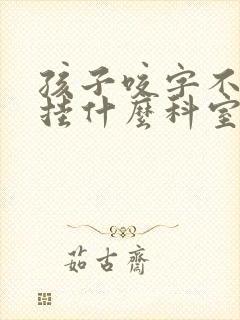 孩子咬字不
挂什麼科室
茹古齋